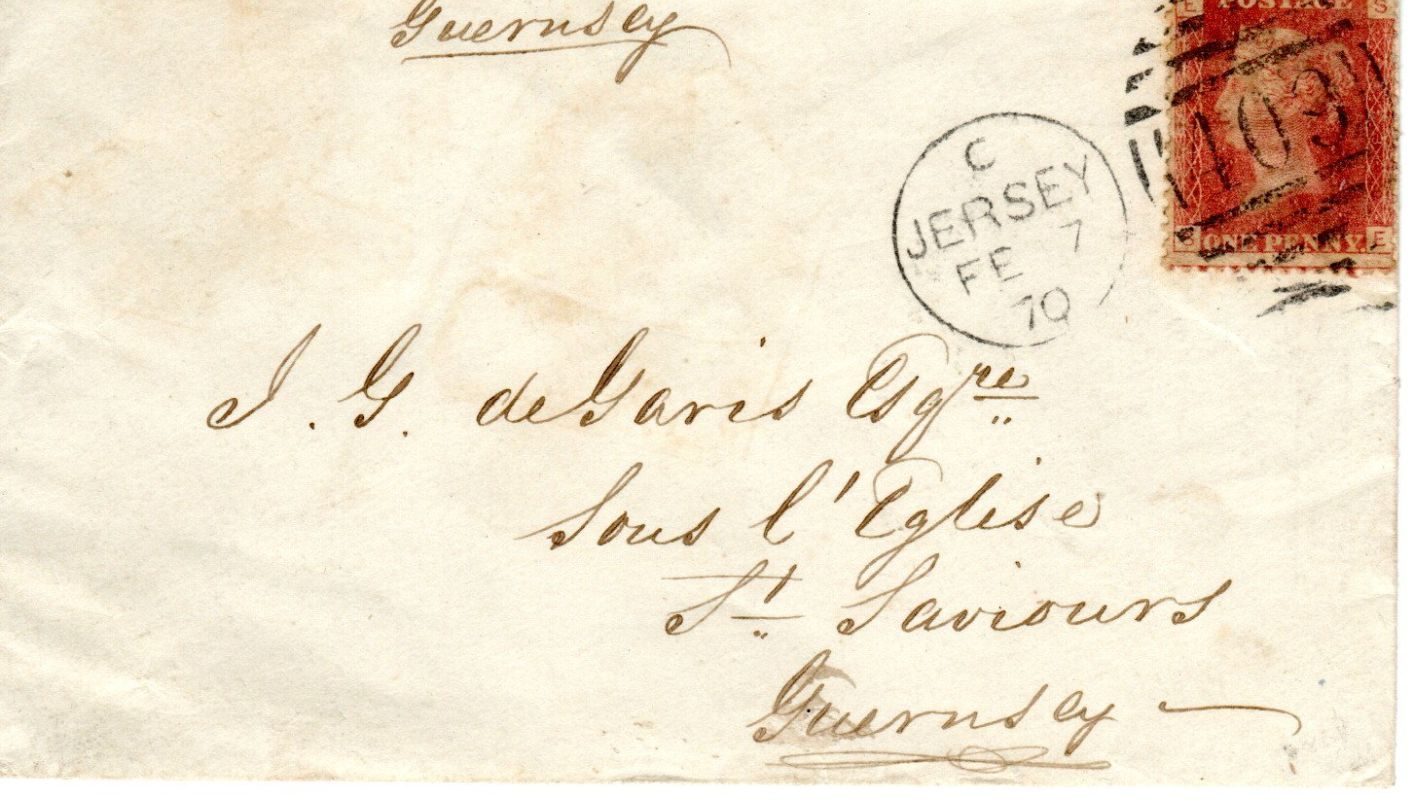 Guernsey
E POSTAGE S
409
S ONE PENNY E
C
JERSEY
FE 7
70
J. G. deGaris Esqre
Sous l'Eglise
St Saviours
Guernsey